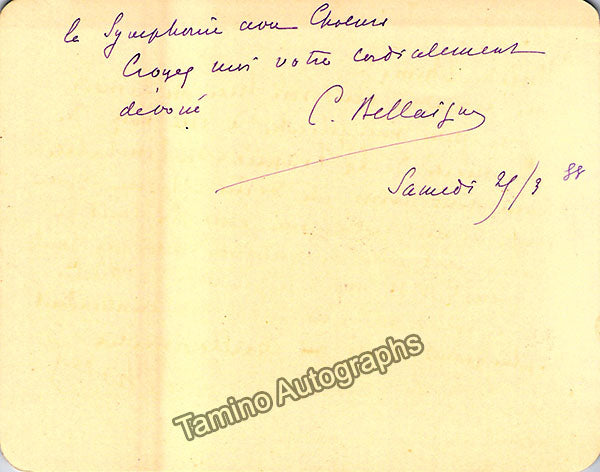 la Symphonie avec Choeurs
Croyez moi votre cordialement
dévoué C. Bellaigue
Samedi 3 88
Tamino Autographs